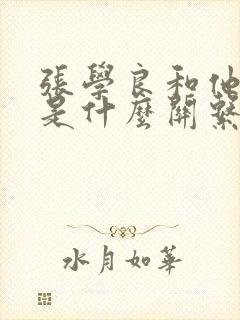 張學良和他
是什麼關係
水月如華